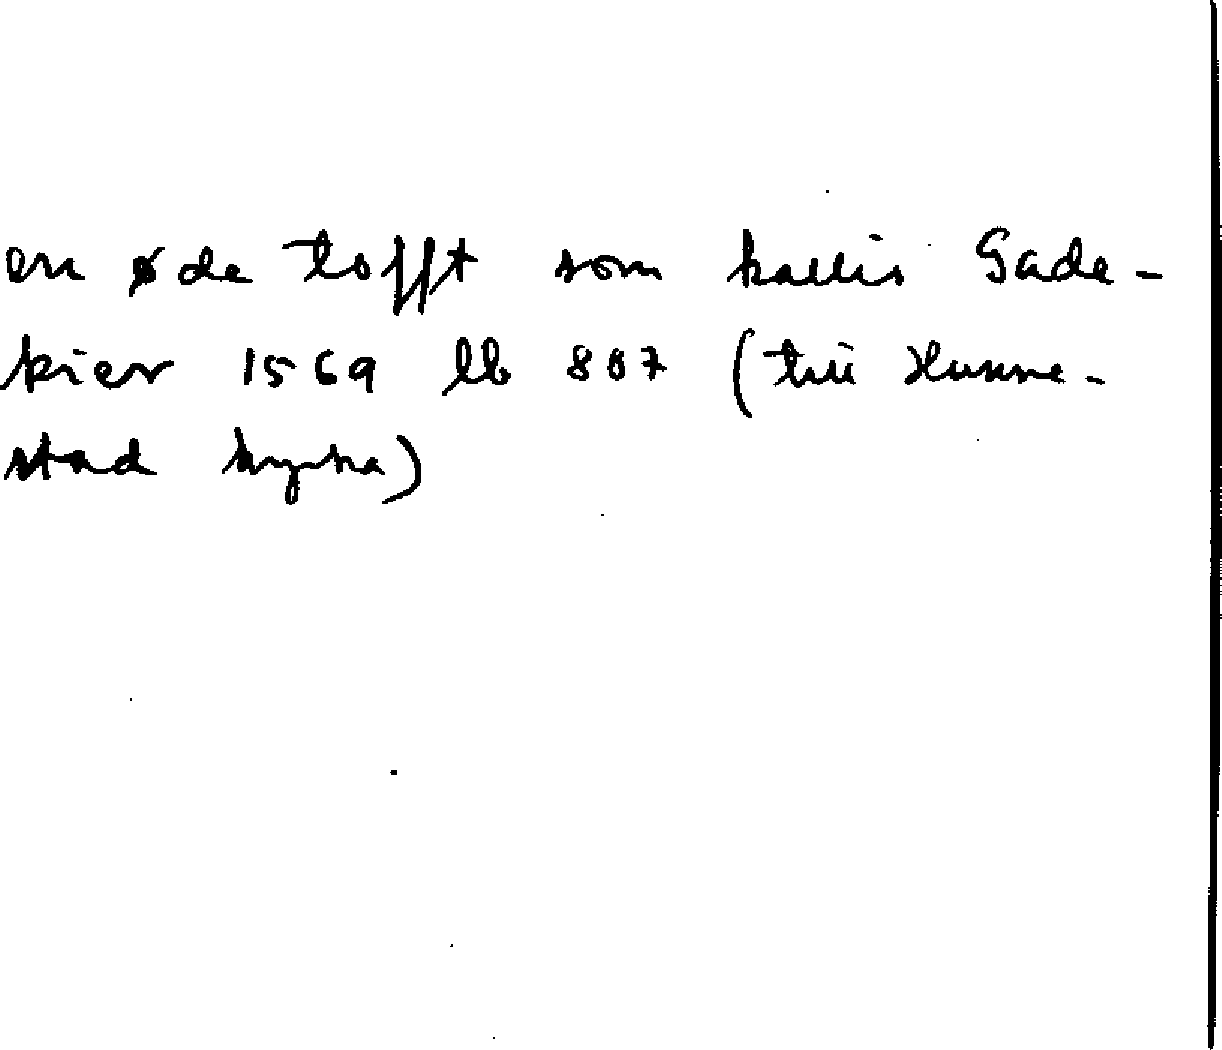 en øde tofft som kallis Gade-
kier 1569 lb 807 (till Hunne-
stad kyrka)